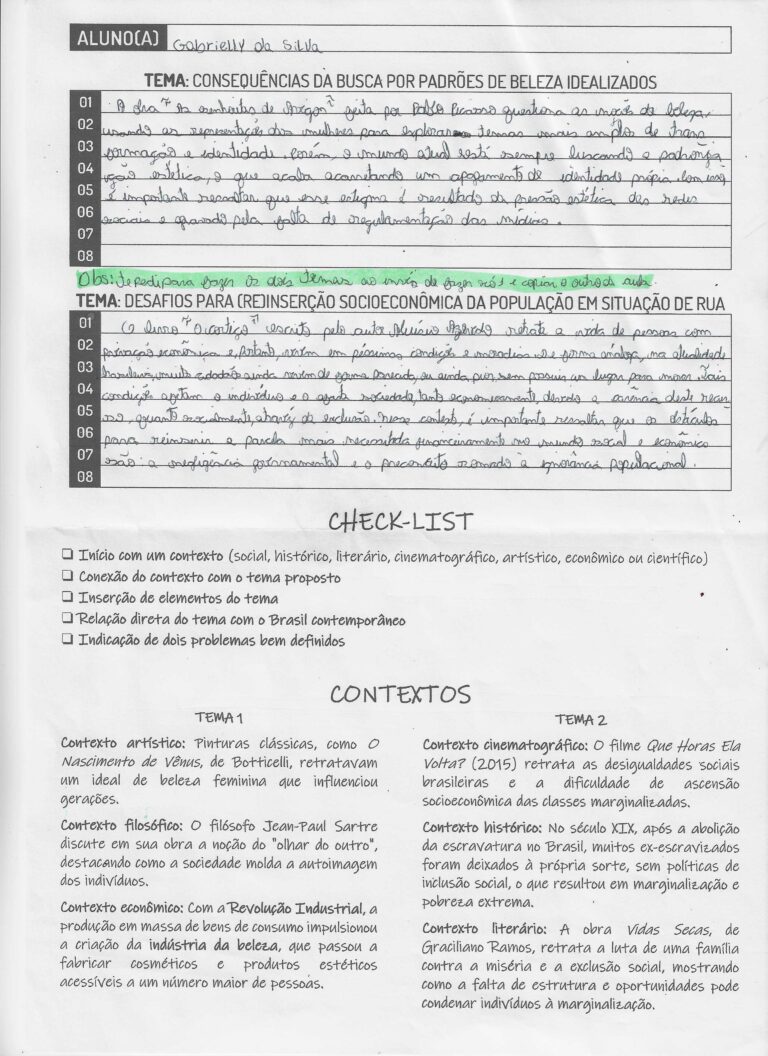 ALUNO(A) Gabrielly da Silva
TEMA: CONSEQUÊNCIAS DA BUSCA POR PADRÕES DE BELEZA IDEALIZADOS
01 A obra "As senhoritas de Avignon" feita por Pablo Picasso questiona as noções de beleza,
02 usando as representações das mulheres para explorar temas mais amplos de trans
03 formação e identidade. Porém, o mundo atual está sempre buscando a padroniza
04 ção estética, o que acaba acarretando um apagamento de identidade própria. Com isso,
05 é importante ressaltar que esse estigma é resultado da pressão estética das redes
06 sociais e gravado pela falta de regulamentação das mídias.
07
08
Obs: te pedi para fazer os dois temas ao invés de fazer só 1 e copiar o outro da aula.
TEMA: DESAFIOS PARA (RE)INSERÇÃO SOCIOECONÔMICA DA POPULAÇÃO EM SITUAÇÃO DE RUA
01 O livro "O cortiço" escrito pelo autor Aluísio Azevedo retrata a vida de pessoas com
02 privação econômica e, portanto, vivem em péssimas condições e moradias. De forma análoga, na atualidade
03 brasileira, muito cidadão ainda vivem de forma parecida, ou ainda pior, sem possuir um lugar para morar. Tais
04 condições afetam o indivíduo e a sociedade, tanto economicamente, devido a carência deste recur
05 so, quanto socialmente, através da exclusão. Nesse contexto, é importante ressaltar que os obstáculos
06 para reinserir a parcela mais necessitada financeiramente no mundo social e econômico
07 são: a negligência governamental e o preconceito somado à ignorância populacional.
08
CHECK-LIST
❑ Início com um contexto (social, histórico, literário, cinematográfico, artístico, econômico ou científico)
❑ Conexão do contexto com o tema proposto
❑ Inserção de elementos do tema
❑ Relação direta do tema com o Brasil contemporâneo
❑ Indicação de dois problemas bem definidos
CONTEXTOS
TEMA 1
Contexto artístico: Pinturas clássicas, como O
Nascimento de Vênus, de Botticelli, retratavam
um ideal de beleza feminina que influenciou
gerações.
Contexto filosófico: O filósofo Jean-Paul Sartre
discute em sua obra a noção do "olhar do outro",
destacando como a sociedade molda a autoimagem
dos indivíduos.
Contexto econômico: Com a Revolução Industrial, a
produção em massa de bens de consumo impulsionou
a criação da indústria da beleza, que passou a
fabricar cosméticos e produtos estéticos
acessíveis a um número maior de pessoas.
TEMA 2
Contexto cinematográfico: O filme Que Horas Ela
Volta? (2015) retrata as desigualdades sociais
brasileiras e a dificuldade de ascensão
socioeconômica das classes marginalizadas.
Contexto histórico: No século XIX, após a abolição
da escravatura no Brasil, muitos ex-escravizados
foram deixados à própria sorte, sem políticas de
inclusão social, o que resultou em marginalização e
pobreza extrema.
Contexto literário: A obra Vidas Secas, de
Graciliano Ramos, retrata a luta de uma família
contra a miséria e a exclusão social, mostrando
como a falta de estrutura e oportunidades pode
condenar indivíduos à marginalização.